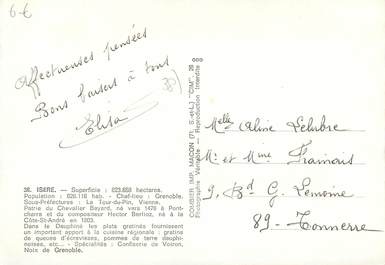 6-€
Affectueuses pensées
Bons baisers à tous
Elisa
38. ISERE. — Superficie : 823.658 hectares.
Population : 626.116 hab. - Chef-lieu : Grenoble.
Sous-Préfectures : La Tour-du-Pin, Vienne.
Patrie du Chevalier Bayard, né vers 1476 à Pont-
charra et du compositeur Hector Berlioz, né à la
Côte-St-André en 1803.
Dans le Dauphiné les plats gratinés fournissent
un important apport à la cuisine régionale : gratins
de queues d'écrevisses, pommes de terre dauphi-
noises, etc... - Spécialités : Confiserie de Voiron,
Noix de Grenoble.
COMBIER IMP. MACON (S.-et-L.) "CIM"
Photographie Véritable - Reproduction Interdite
Melle Aline
Mr et Mme
9, Bd G. Lemoine
89 - Tonnerre